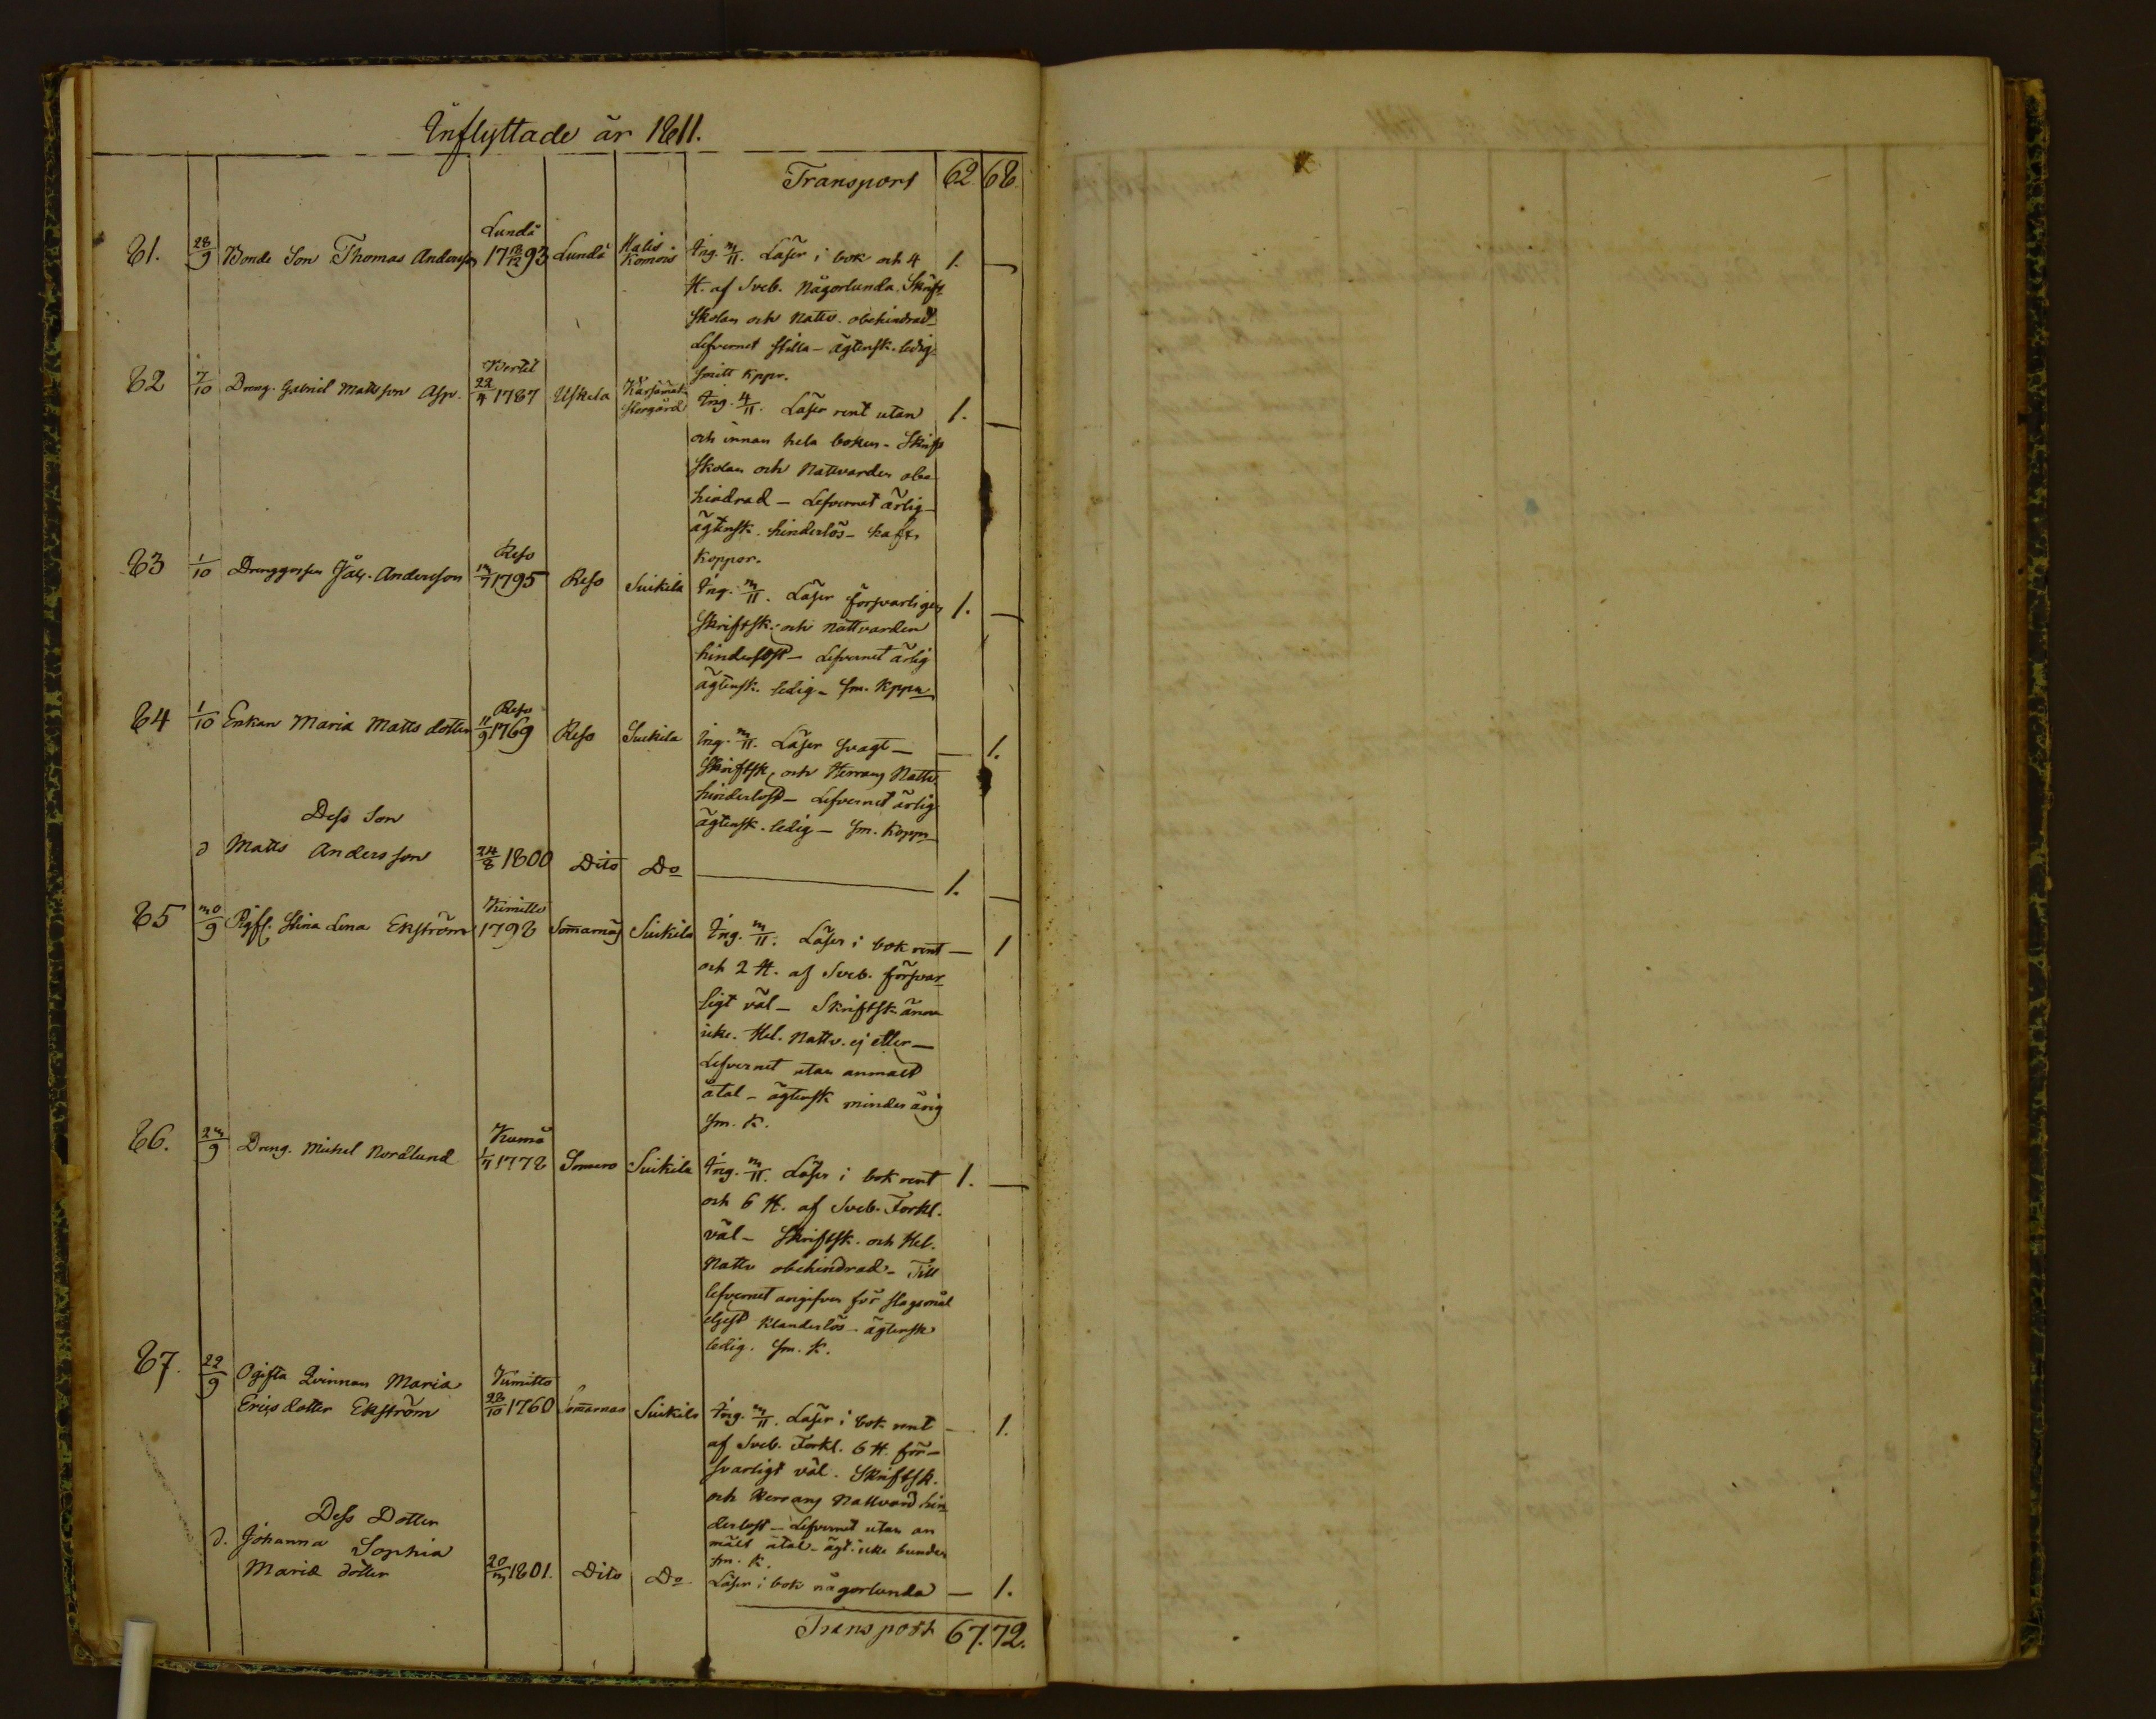 Inflyttade år 1811.
Transport 62. 68.
81. 28/9 Bonde Son Thomas Andersson Lundå 17 93 Lundå Halis Komois Ing. 3/11. Läser i bok och 4 1. —
H. af Sveb. Någorlunda. Skrift
skolan och Nattv. obehindrad
Lefvernet stilla – ägtensk. ledig
smitt kppr.
82 7/10 Dreng. Gabriel Mattsson Asp. Bertil 22/4 1787 Uskela Kärsämäki Ing. 4/11. Läser rent utan 1. —
och innan hela boken – Skrift
skolan och Nattvarden obe
hindrad – Lefvernet ärlig
ägtensk. hinderlös – haft
koppor.
83 1/10 Drenggossen Jak. Andersson Reso 1795 Reso Suikila Ing. 3/11. Läser försvarligen 1. —
Skriftsk. och Nattvarden
hinderlöst – Lefvernet ärlig
ägtensk. ledig – sm. kppr
84 1/10 Enkan Maria Matts dotter Reso 11/9 1769 Reso Suikila Ing. 3/11. Läser svagt — — 1.
Skriftsk. och Herrans Nattv.
hinderlöst – Lefvernet ärlig
ägtensk. ledig – sm. koppr
Dess Son
d Matts Andersson 24/8 1800 Dito Do — 1. —
85 30/9 Pigfl. Stina Lena Ekström Kimitto 1798 Somarnäs Suikila Ing. 3/11. Läser i bok rent — 1
och 2 H. af Sveb. försvar
ligt väl – Skriftsk. ännu
icke. Hel. Nattv. ej eller —
Lefvernet utan anmält
åtal – ägtensk minderårig
sm. K.
86. 23/9 Dreng. Michel Nordlund Kumå 1778 Somero Suikila Ing. 3/11. Läser i bok rent 1. —
och 6 H. af Sveb. Förkl.
väl – Skriftsk. och Hel.
Nattv obehindrad – Till
lefvernet angifven för slagsmål
elgest klanderlös – ägtensk
ledig. sm. K.
87. 22/9 Ogifta Qvinnan Maria Kimitto
Erics dotter Ekström 28/10 1760 Somarnas Suikila Ing. 3/11. Läser i bok rent — 1.
af Sveb. Förkl. 6 H. för-
svarligt väl. Skriftsk.
och Herrans Nattvard hin
derlöst – Lefvernet utan an
mält åtal – ägt. icke bunden
sm. K.
Dess Dotter
d. Johanna Sophia
Mariæ dotter 20/3 1801. Dito Do Läser i bok någorlunda — 1.
Transport 67. 72.